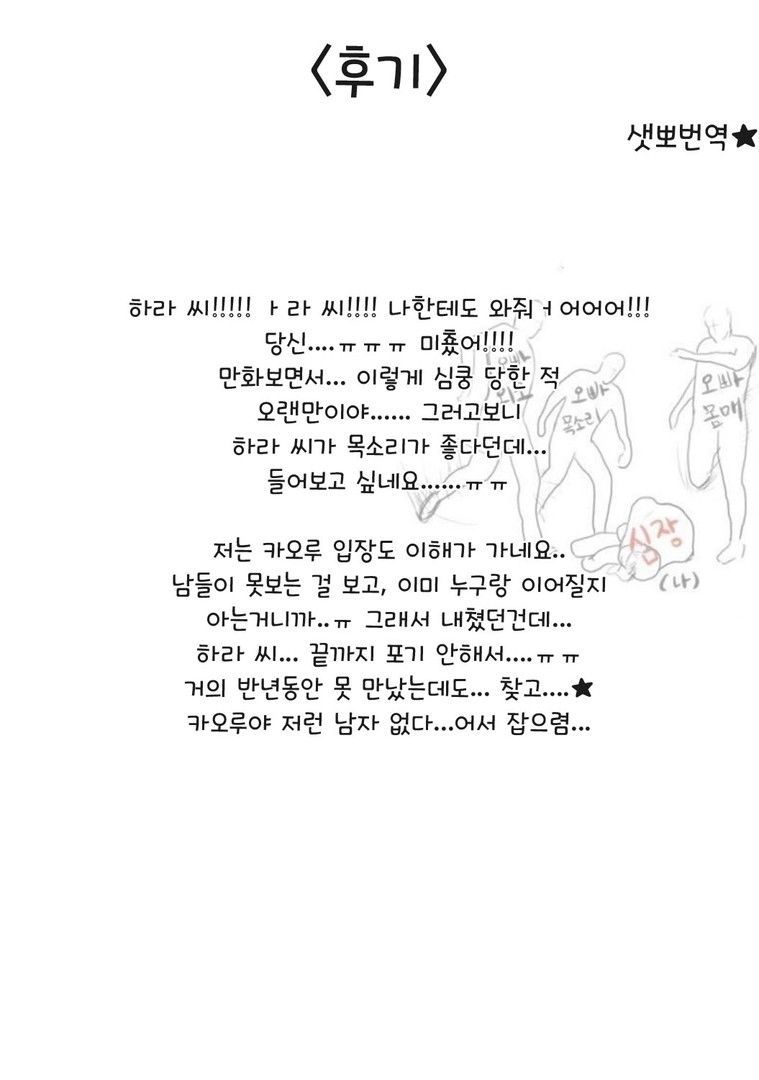 <후기>
샛뽀번역★
하라 씨!!!!! ㅏ라 씨!!!! 나한테도 와줘ㅓ어어어!!!
당신....ㅠㅠㅠ 미쵸어!!!!
만화보면서... 이렇게 심쿵 당한 적
오랜만이야...... 그러고보니
하라 씨가 목소리가 좋다던데...
들어보고 싶네요......ㅠㅠ
오빠
외모
오빠
목소리
오빠
몸매
심장
(나)
저는 카오루 입장도 이해가 가네요..
남들이 못보는 걸 보고, 이미 누구랑 이어질지
아는거니까..ㅠ 그래서 내쳤던건데...
하라 씨... 끝까지 포기 안해서....ㅠㅠ
거의 반년동안 못 만났는데도... 찾고....★
카오루야 저런 남자 없다...어서 잡으렴...